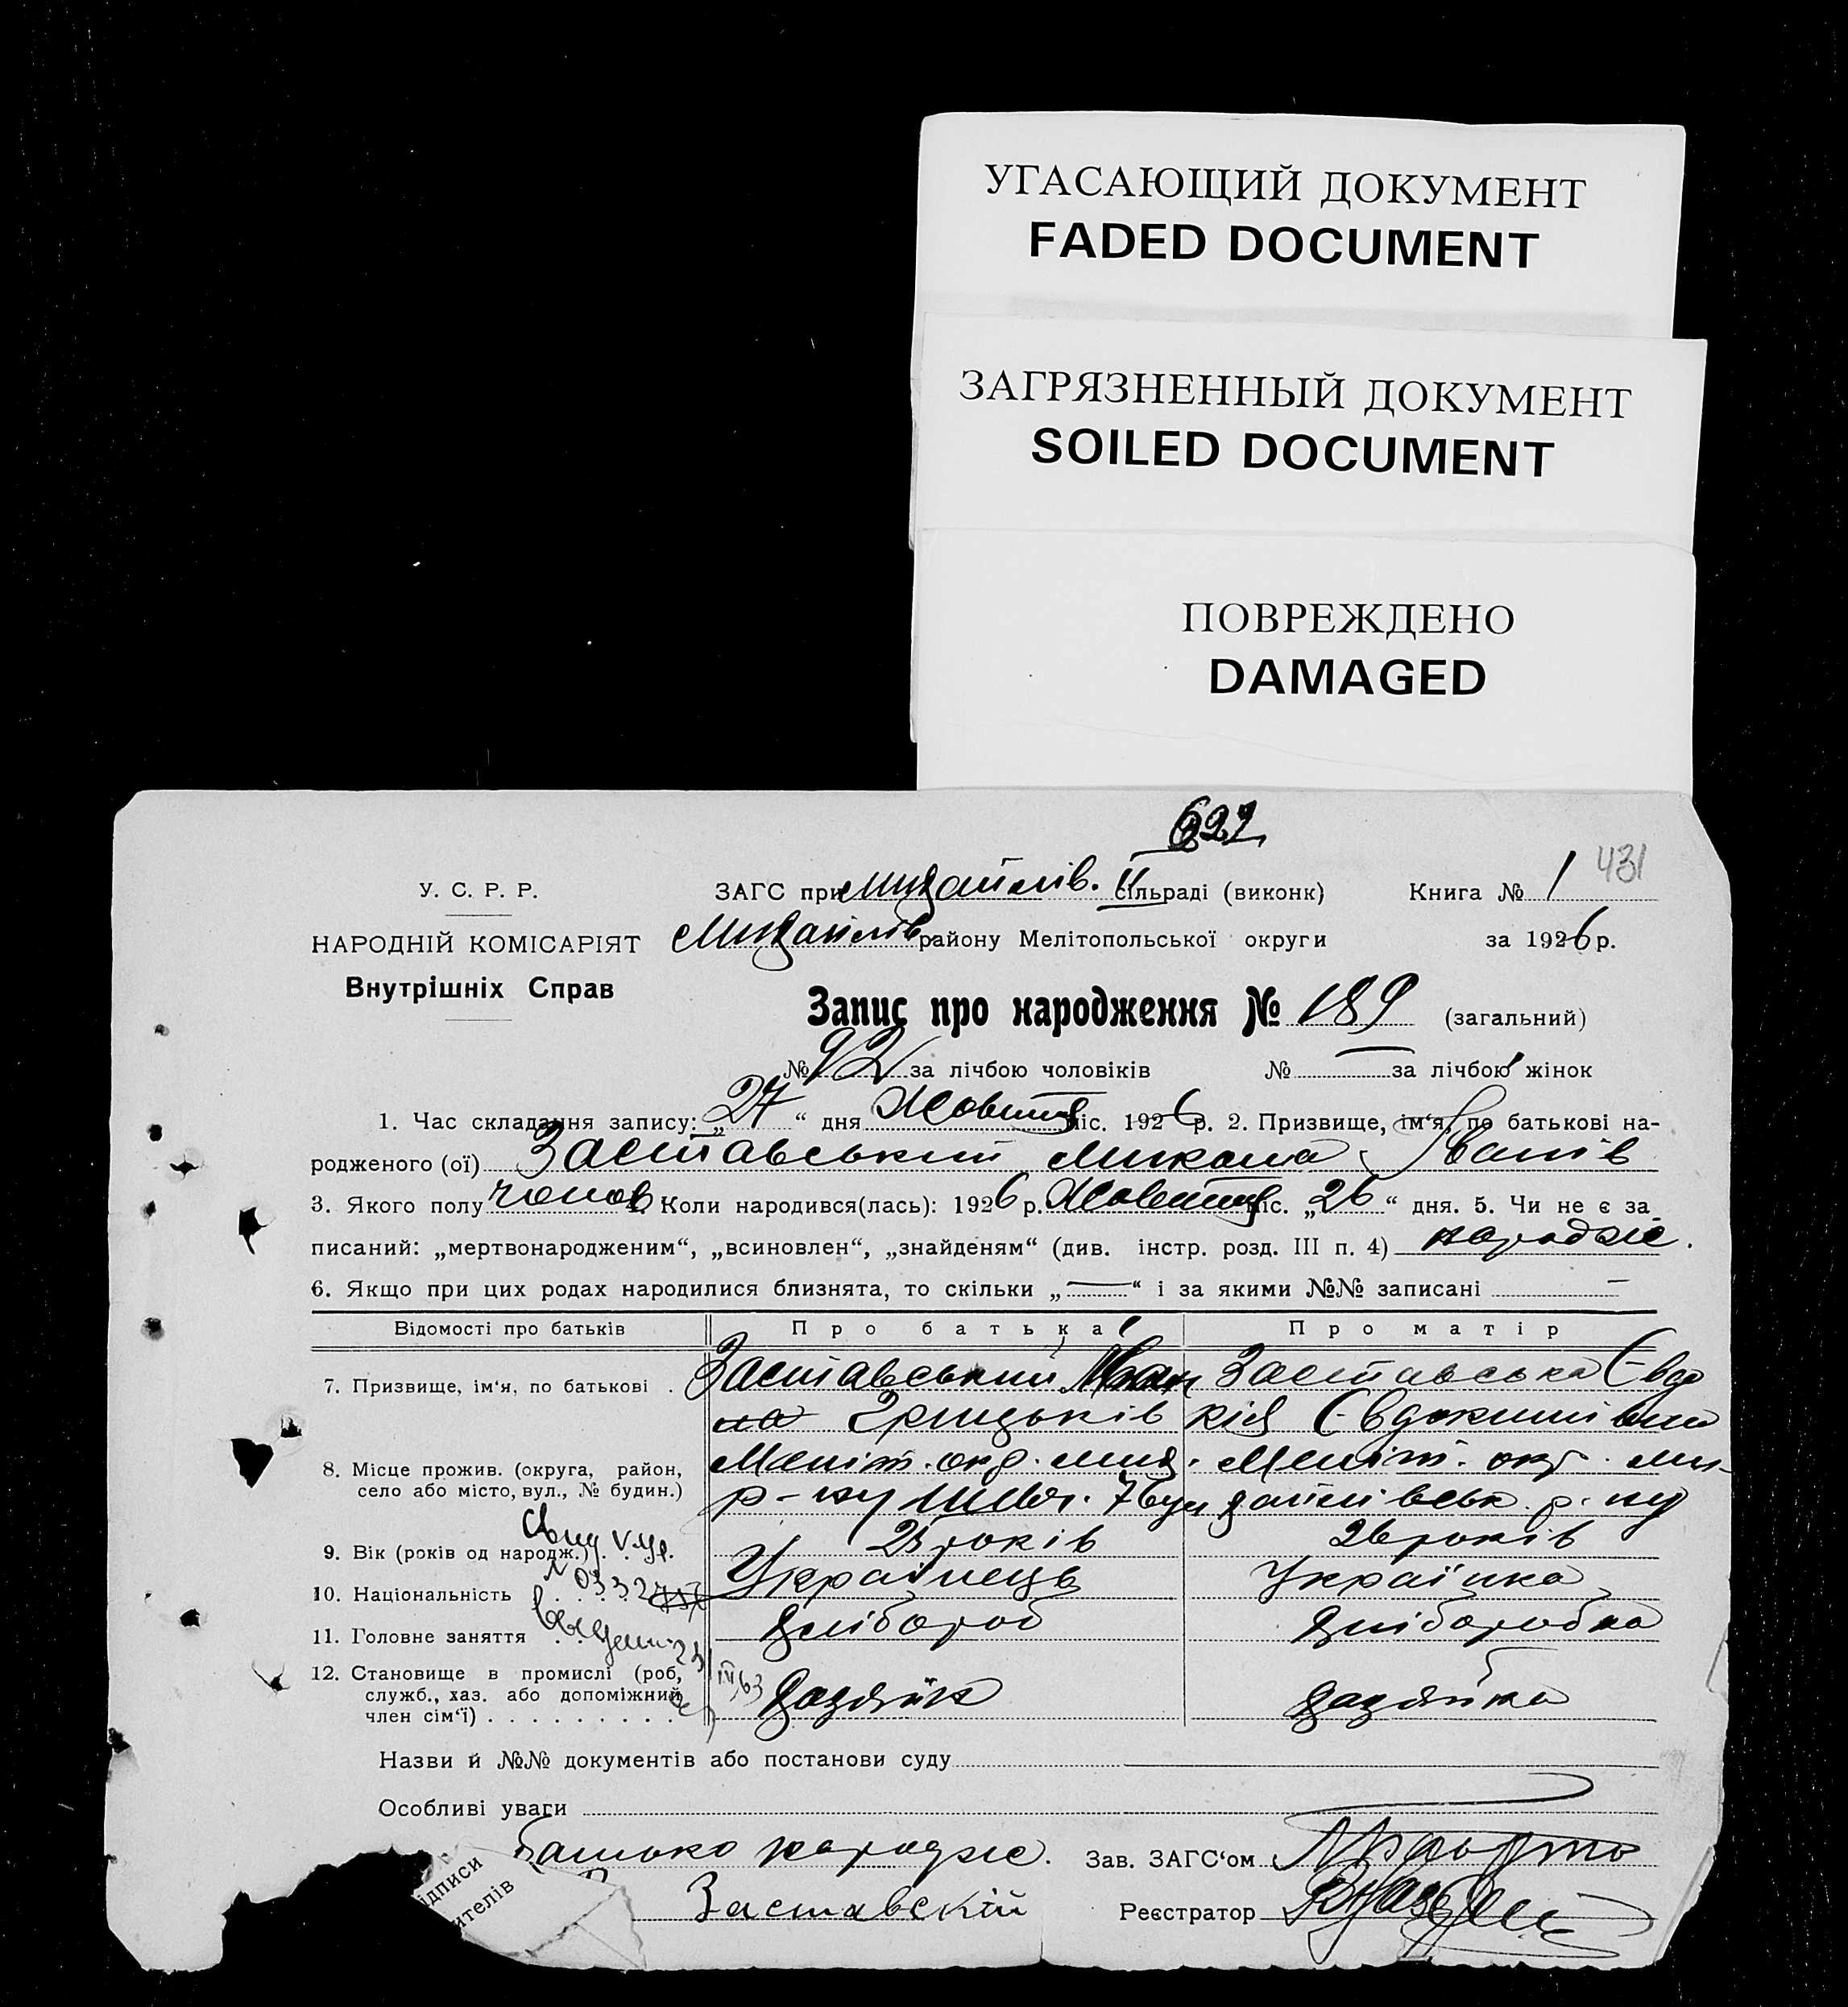 УГАСАЮЩИЙ ДОКУМЕНТ
FADED DOCUMENT
ЗАГРЯЗНЕННЫЙ ДОКУМЕНТ
SOILED DOCUMENT
ПОВРЕЖДЕНО
DAMAGED
431
У. С. Р. Р.
ЗАГС при Михайлів. II сільраді (виконк)
Книга № 1
НАРОДНІЙ КОМІСАРІЯТ
Михайлів району Мелітопольської округи
за 1926 р.
Внутрішніх Справ
Запис про народження № 189 (загальний)
№ 92 за лічбою чоловіків № — за лічбою жінок
1. Час складання запису: „27“ дня Жовтня міс. 1926 р. 2. Призвище, ім‘я, по батькові на-
родженого (ої) Заставський Микола Іванів
3. Якого полу чолов 4. Коли народився(лась): 1926 р. Жовтня міс. „26“ дня. 5. Чи не є за-
писаний: „мертвонародженим“, „всиновлен“, „знайденям“ (див. інстр. розд. III п. 4) народже.
6. Якщо при цих родах народилися близнята, то скільки „—“ і за якими №№ записані —
Відомості про батьків
Про батька
Про матір
7. Призвище, ім‘я, по батькові .
Заставський Іван
Грицьків
Заставська Євдо
кія Євдокимівна
8. Місце прожив. (округа, район,
село або місто, вул., № будин.)
Меліт. окр. мих.
р-ну
Меліт. окр. ми-
хайлівськ. р-ну
9. Вік (років од народж.) . .
25 років
26 років
10. Національність
Українець
Українка
11. Головне заняття . .
хлібороб
хліборобка
12. Становище в промислі (роб,
служб., хаз. або допоміжний
член сім‘ї) . . . . . . . . .
хазяїн
хазяйка
Назви й №№ документів або постанови суду
Особливі уваги
батько народже.
Зав. ЗАГС‘ом
ідписи
ителів
Заставскій
Реєстратор